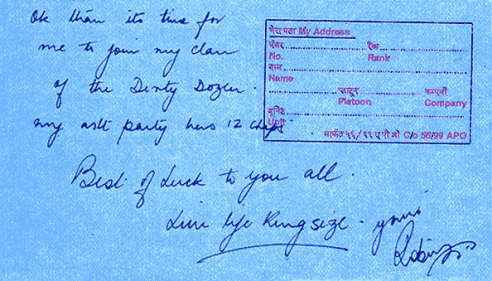 Ok then its time for
me to join my clan
of the Dirty Dozen.
my aslt party has 12 chaps
Best of Luck to you all.
Live life Kingsize. yours
Robin
मेरा पता My Address
नंबर रैंक
No. Rank
नाम
Name
प्लाटून कम्पनी
Platoon Company
यूनिट
Unit
मार्फत ५६/९९ ए पी ओ C/o 56/99 APO